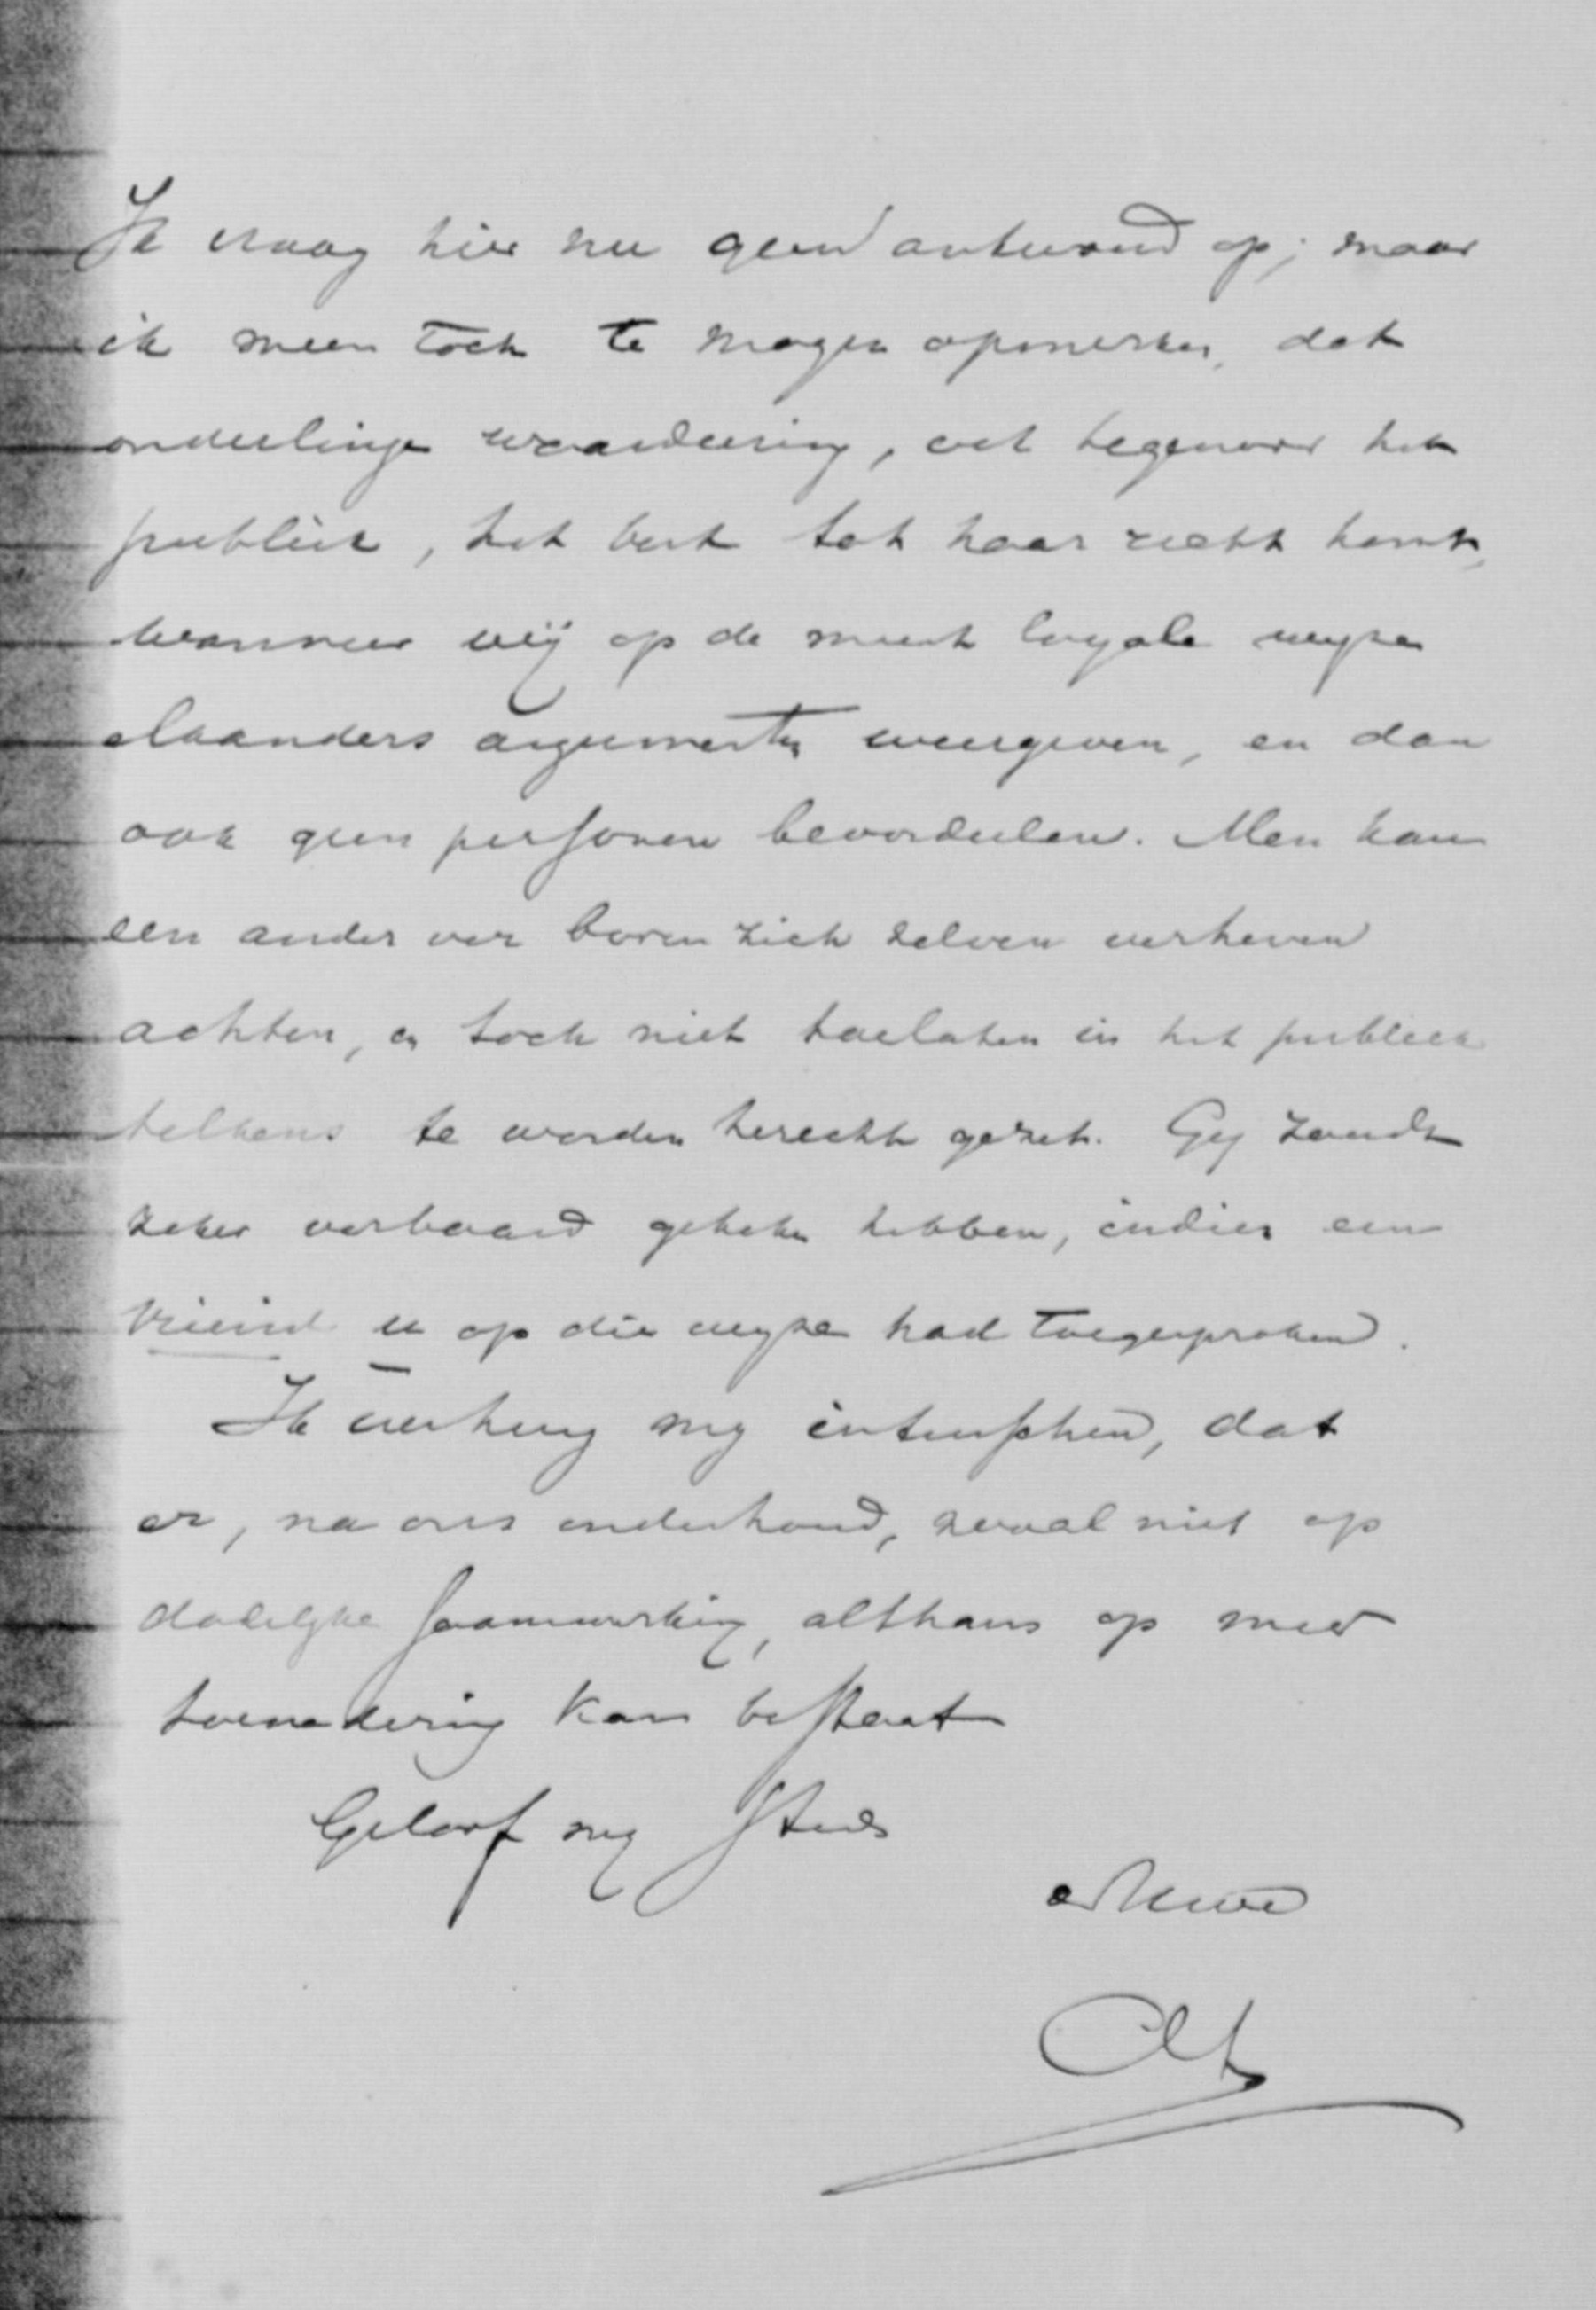 Ik vraag hier nu geen antwoord op; maar
ik meen toch te mogen opmerken, dat
onderlinge waardeering, ook tegenover het
publiek, het best tot haar recht komt,
wanneer wij op de meest loyale wyze
elkanders argumenten weergeven, en dan
ook geen personen beoordeelen. Men kan
een ander ver boven zich zelven verheven
achten, en toch niet toelaten in het publiek
telkens te worden terecht gezet. Gij zoudt
zeker verbaasd gekeken hebben, indien een
vriend u op die wyze had toegesproken.
Ik verheug my intusschen, dat
er, na ons onderhoud, zooal niet op
dadelyke saamwerking, althans op meer
toenadering kans bestaat
Geloof my steeds